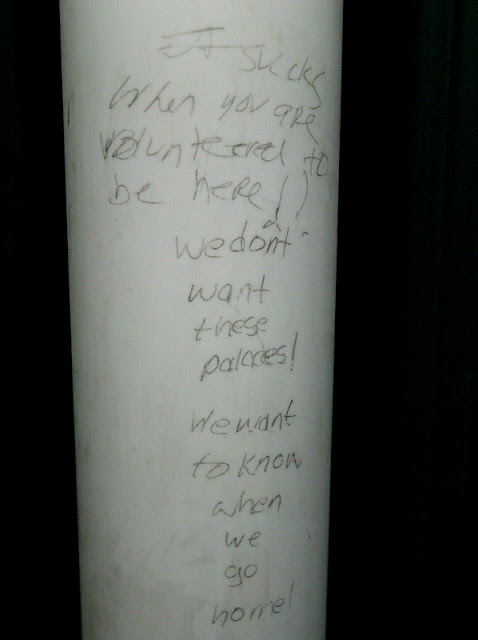 It sucks
When you are
voluntered to
be here!!
we don't
want
these
palaces!
We want
to know
when
we
go
home!